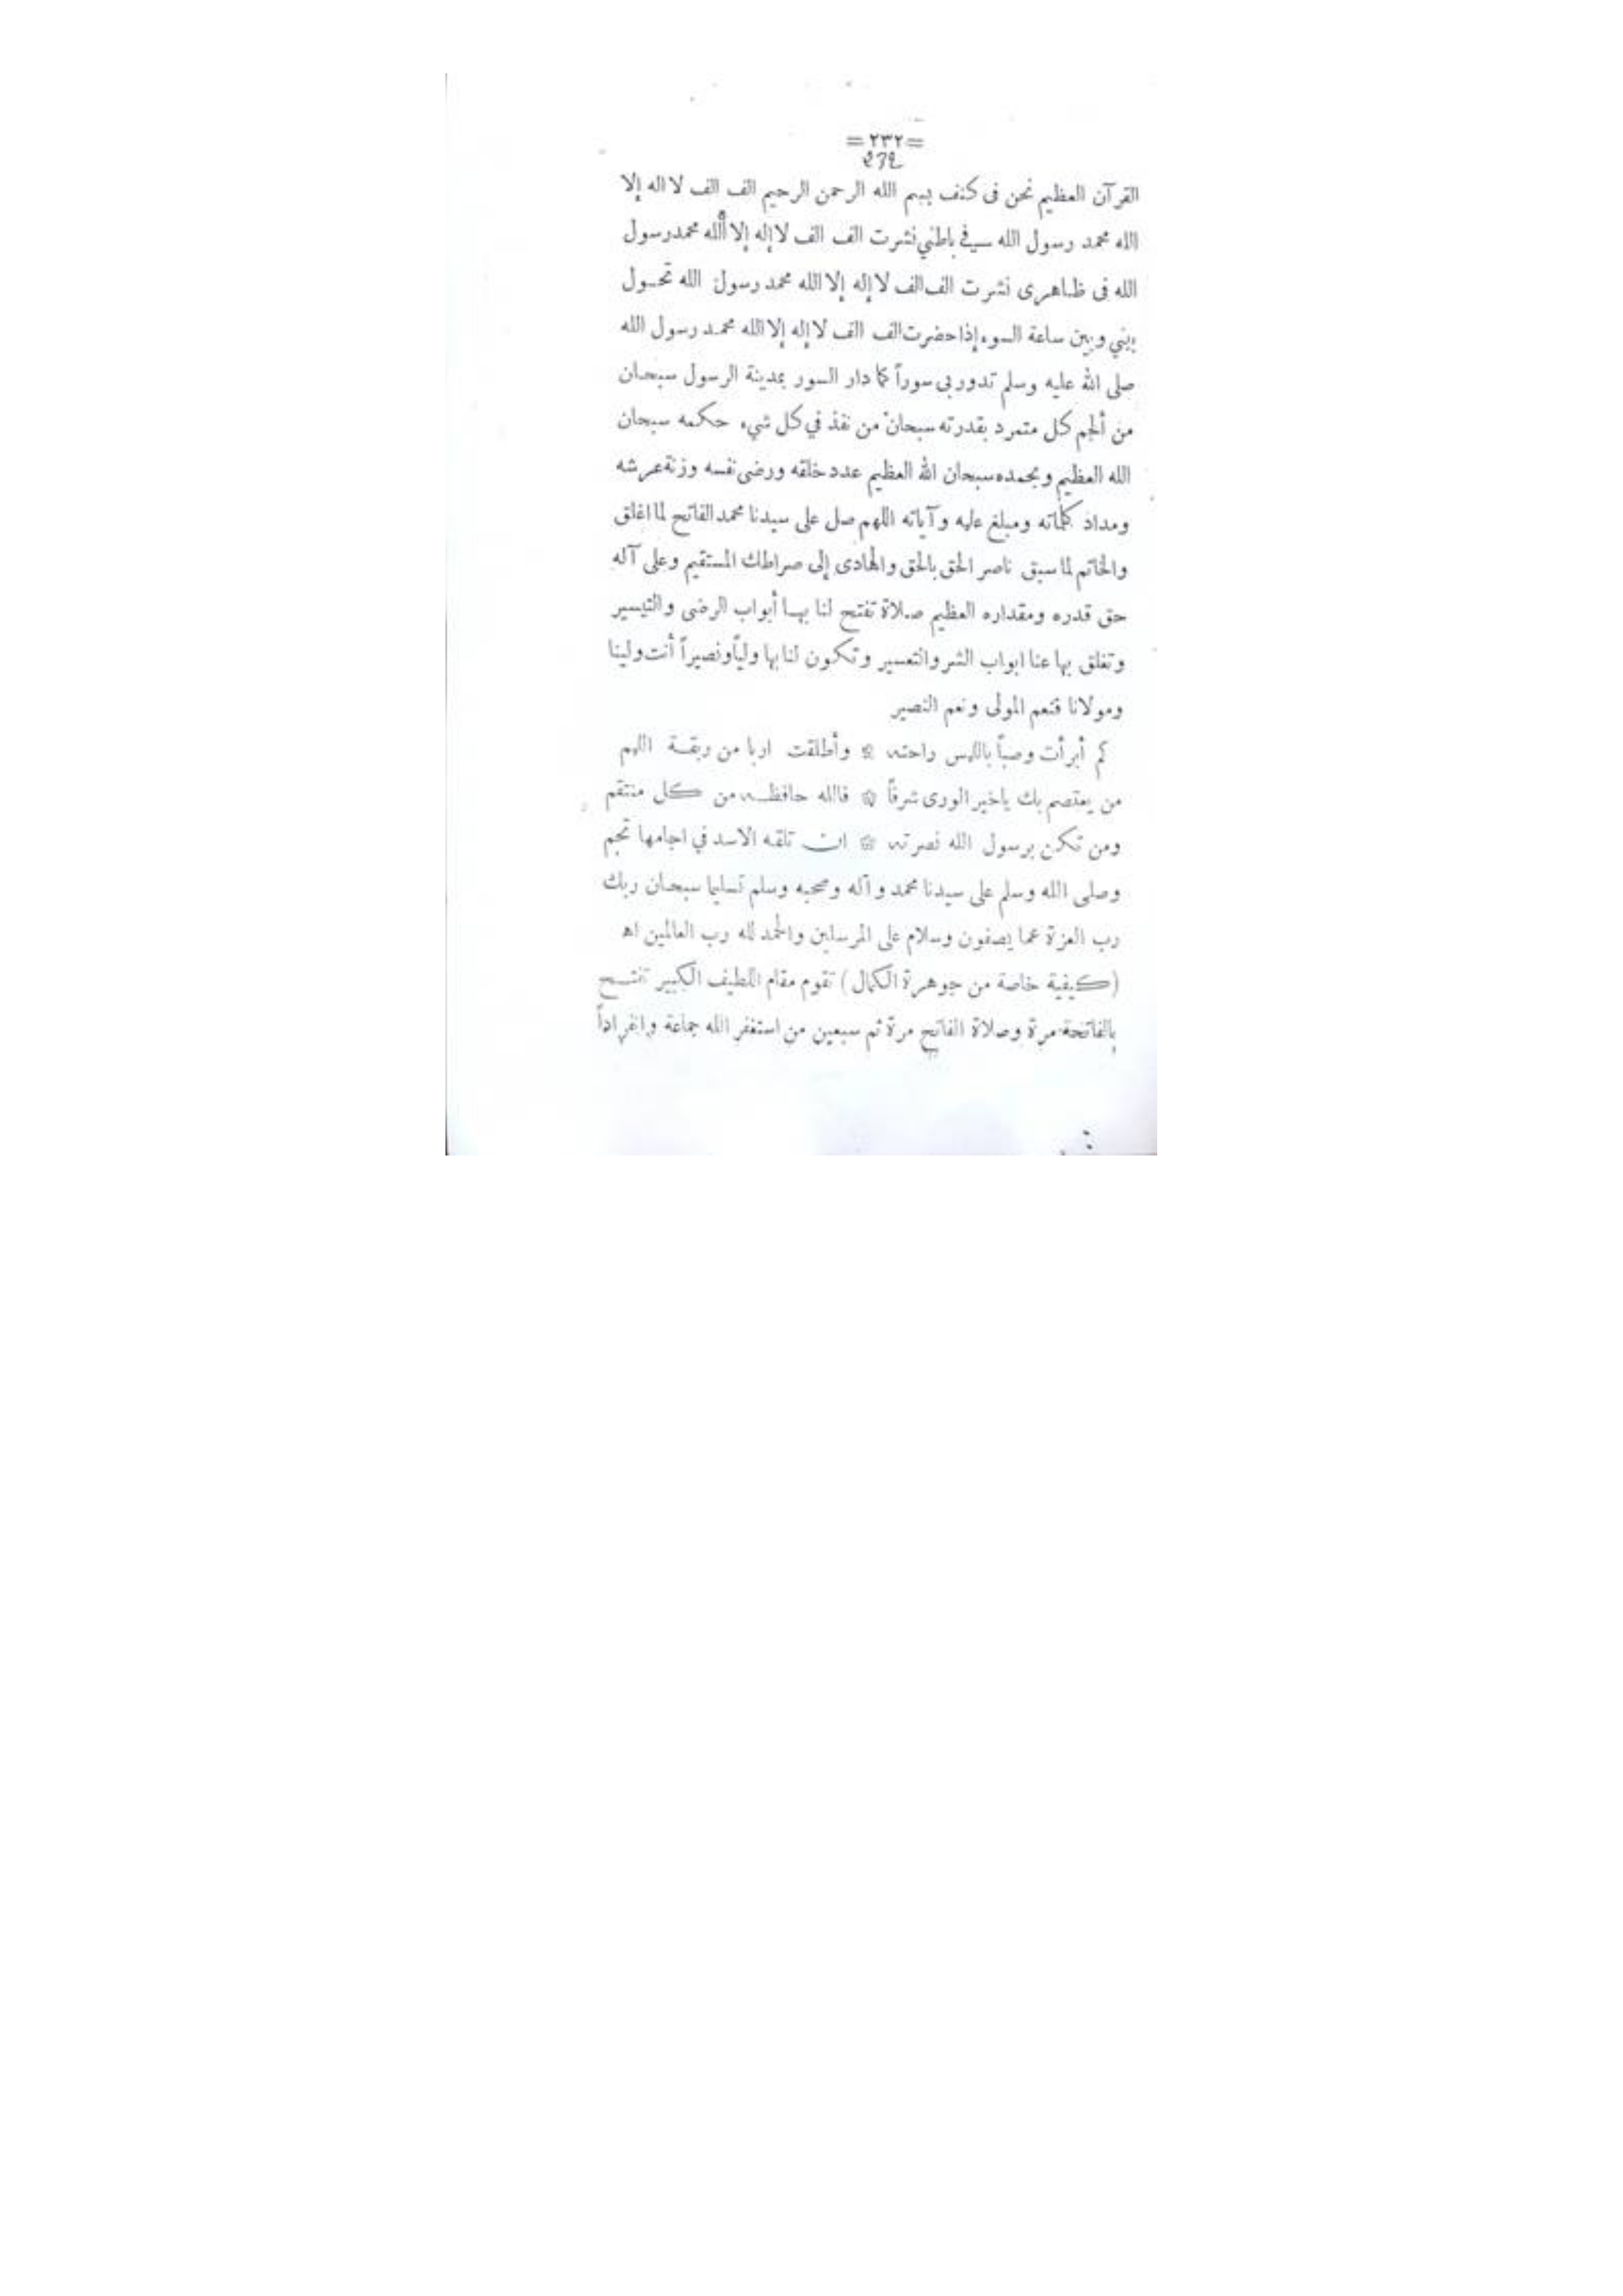 =٢٣٢=
232
القرآن العظيم نحن فى كنف بسم الله الرحمن الرحيم الف الف لا اله إلا
الله محمد رسول الله سيفي باطني نشرت الف الف لا إله إلا الله محمد رسول
الله فى ظاهرى نشرت الف الف لا إله إلا الله محمد رسول الله تحول
بيني وبين ساعة السوء إذا حضرت الف الف لا إله إلا الله محمد رسول الله
صلى الله عليه وسلم تدور بى سوراً كما دار السور بمدينة الرسول سبحان
من ألجم كل متمرد بقدرته سبحان من نفذ في كل شيء حكمه سبحان
الله العظيم وبحمده سبحان الله العظيم عدد خلقه ورضى نفسه وزنة عرشه
ومداد كلماته ومبلغ علمه وآياته اللهم صل على سيدنا محمد الفاتح لما اغلق
والخاتم لما سبق ناصر الحق بالحق والهادى إلى صراطك المستقيم وعلى آله
حق قدره ومقداره العظيم صلاة تفتح لنا بها أبواب الرضى والتيسير
وتغلق بها عنا ابواب الشر والتعسير وتكون لنا بها ولياً ونصيراً أنت ولينا
ومولانا فنعم المولى ونعم النصير
كم أبرأت وصباً باللمس راحته ۞ وأطلقت اربا من ربقة اللمم
من يعتصم بك ياخير الورى شرفاً ۞ فالله حافظه من كل منتقم
ومن تكن برسول الله نصرته ۞ ان تلقه الاسد في اجامها تجم
وصلى الله وسلم على سيدنا محمد وآله وصحبه وسلم تسليما سبحان ربك
رب العزة عما يصفون وسلام على المرسلين والحمد لله رب العالمين اه
(كيفية خاصة من جوهرة الكمال) تقوم مقام اللطيف الكبير تفتتح
بالفاتحة مرة وصلاة الفاتح مرة ثم سبعين من استغفر الله جماعة وانفراداً